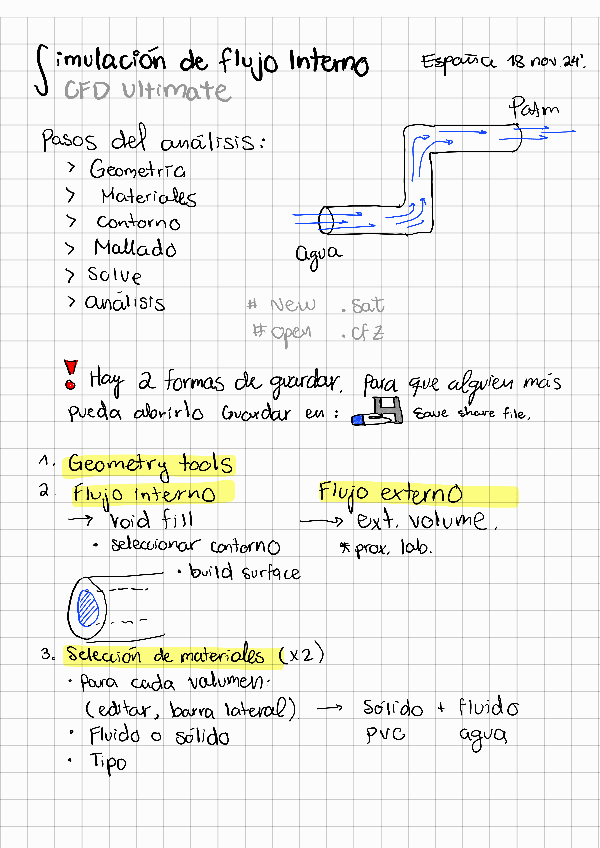 Simulación de flujo Interno
España 18 nov 24'.
CFD Ultimate
Patm
Pasos del análisis:
> Geometría
> Materiales
> Contorno
> Mallado
> Solve
> análisis
agua
# New .sat
# open .cfz
! Hay 2 formas de guardar. Para que alguien más
pueda abrirlo Guardar en: Save share file.
1. Geometry tools
2. Flujo interno
→ void fill
• seleccionar contorno
• build surface
Flujo externo
→ ext. volume.
* prox. lab.
3. Selección de materiales (x2)
• Para cada volumen.
(editar, barra lateral) → Sólido + fluido
• Fluido o sólido PVC agua
• Tipo